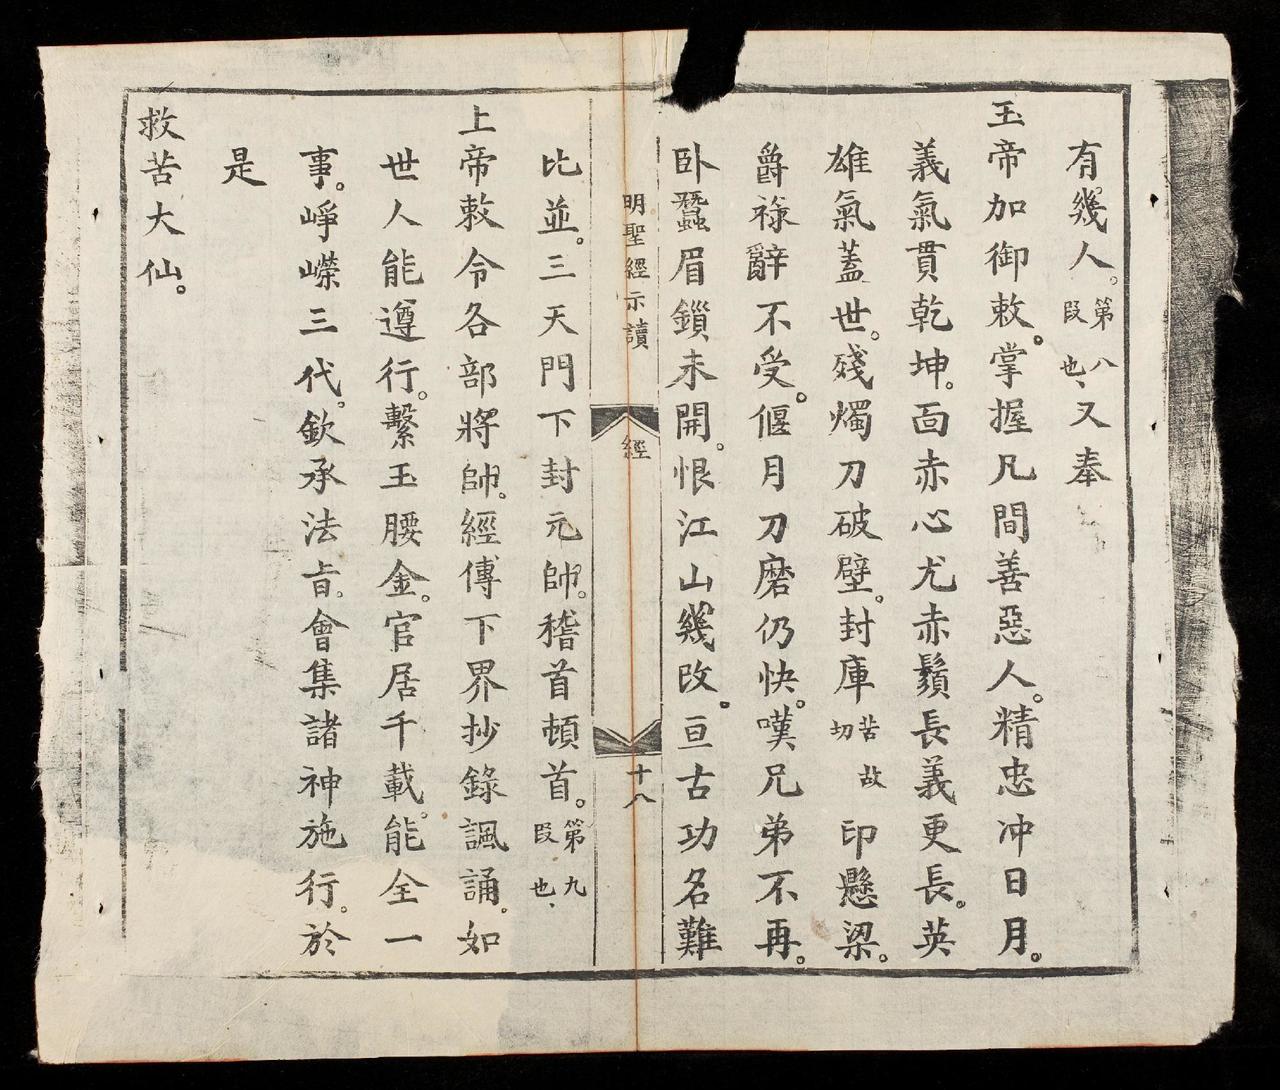 有幾人。第八段也、又奉
玉帝加御敕。掌握凡間善惡人。精忠冲日月。
義氣貫乾坤。面赤心尤赤鬚長義更長。英
雄氣蓋世。殘燭刀破壁。封庫苦故切印懸梁。
爵祿辭不受。偃月刀磨仍快。嘆兄弟不再。
卧蠶眉鎖未開。恨江山幾改。亘古功名難
明聖經示讀 經 十八
比並。三天門下封元帥。稽首頓首。第九段也、
上帝敕令各部將帥。經傳下界抄錄諷誦。如
世人能遵行。繫玉腰金。官居千載。能全一
事。崢嶸三代。欽承法旨。會集諸神施行。於
是
救苦大仙。